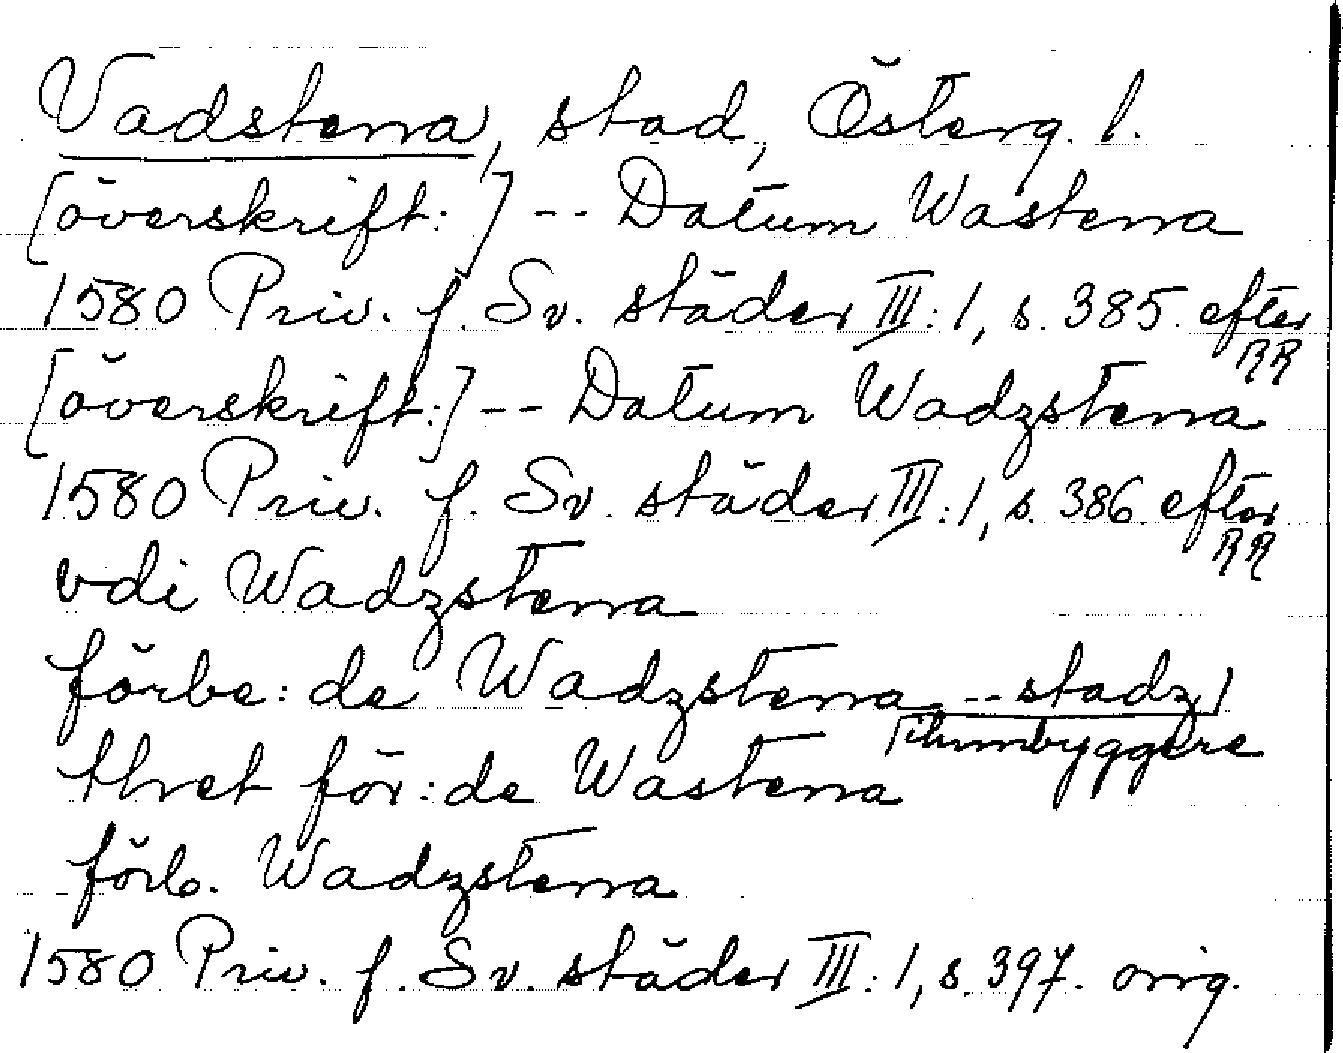 Vadstena, stad, Österg. l.
[överskrift:] -- Datum Wastena
1580 Priv. f. Sv. städer III:1, s. 385 efter RR
[överskrift:] -- Datum Wadzstena
1580 Priv. f. Sv. städer III:1, s. 386 efter RR
vdi Wadzstena
förbe:de Wadzstena -- stadz
Jthunbyggere
thet för:de Wastena
förb. Wadzstena
1580 Priv. f. Sv. städer III:1, s. 397. orig.